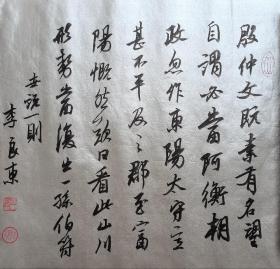 殷仲文既素有名望
自謂必當阿衡朝
政忽作東陽太守意
甚不平及之郡至富
陽慨然歎曰看此山川
形勢當復出一孫伯符
世說一則
李良東